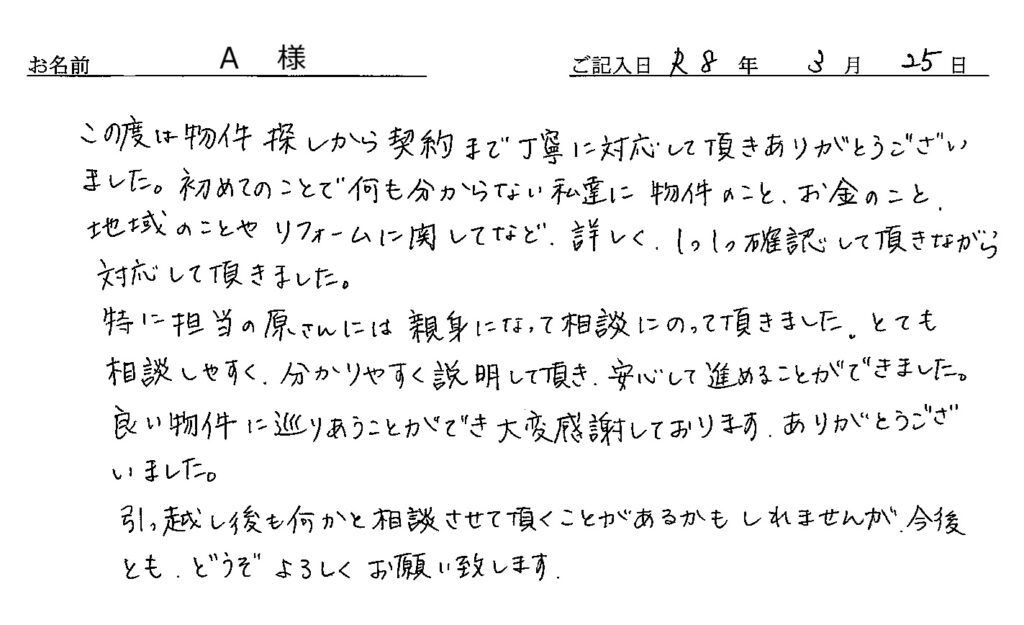 お名前 A 様 ご記入日 R8 年 3 月 25 日
この度は物件探しから契約まで丁寧に対応して頂きありがとうござい
ました。初めてのことで何も分からない私達に物件のこと、お金のこと、
地域のことやリフォームに関してなど、詳しく、1つ1つ確認して頂きながら
対応して頂きました。
特に担当の原さんには親身になって相談にのって頂きました。とても
相談しやすく、分かりやすく説明して頂き、安心して進めることができました。
良い物件に巡りあうことができ大変感謝しております。ありがとうござ
いました。
引っ越し後も何かと相談させて頂くことがあるかもしれませんが、今後
とも、どうぞよろしくお願い致します。